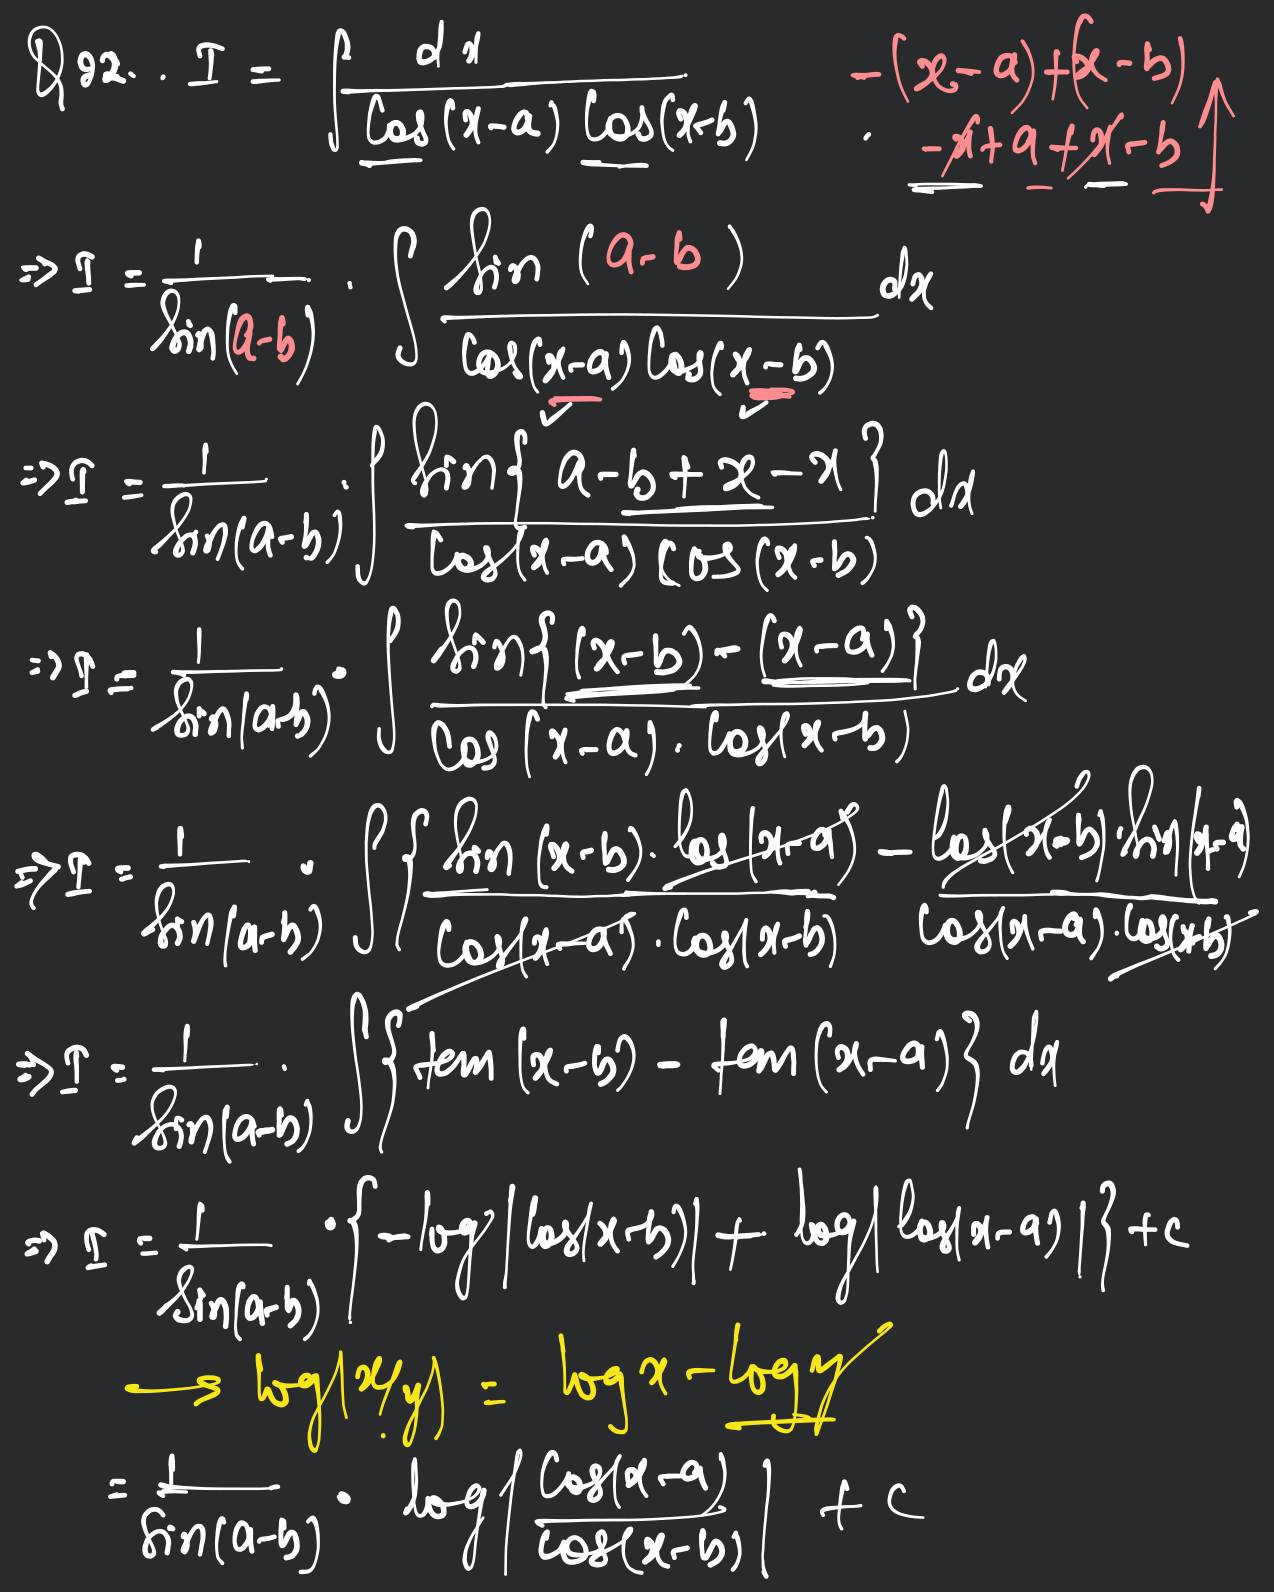 Q 22. . I = ∫ dx / Cos(x-a) Cos(x-b)
-(x-a)+(x-b)
-x+a+x-b
=> I = 1/Sin(a-b) . ∫ Sin (a-b) / Cos(x-a) Cos(x-b) dx
=> I = 1/Sin(a-b) . ∫ Sin{ a-b+x-x } / Cos(x-a) Cos(x-b) dx
=> I = 1/Sin(a-b) . ∫ Sin{(x-b)-(x-a)} / Cos(x-a) . Cos(x-b) dx
=> I = 1/Sin(a-b) . ∫ { Sin(x-b) . Cos(x-a) / Cos(x-a) . Cos(x-b) - Cos(x-b) . Sin(x-a) / Cos(x-a) . Cos(x-b)
=> I = 1/Sin(a-b) . ∫ {tan(x-b) - tan(x-a)} dx
=> I = 1/Sin(a-b) . {-log|Cos(x-b)| + log|Cos(x-a)|} + c
→ log(x/y) = log x - log y
= 1/Sin(a-b) . log| Cos(x-a) / Cos(x-b) | + c